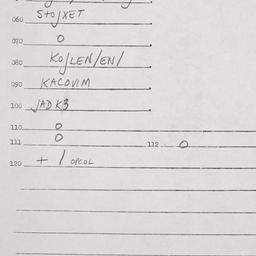 060 STO/XET
070 O
080 KO/LEN/EN/
090 KACOVIM
100 JADK3
110 O
111 O 112 O
120 + 1 OPCOL